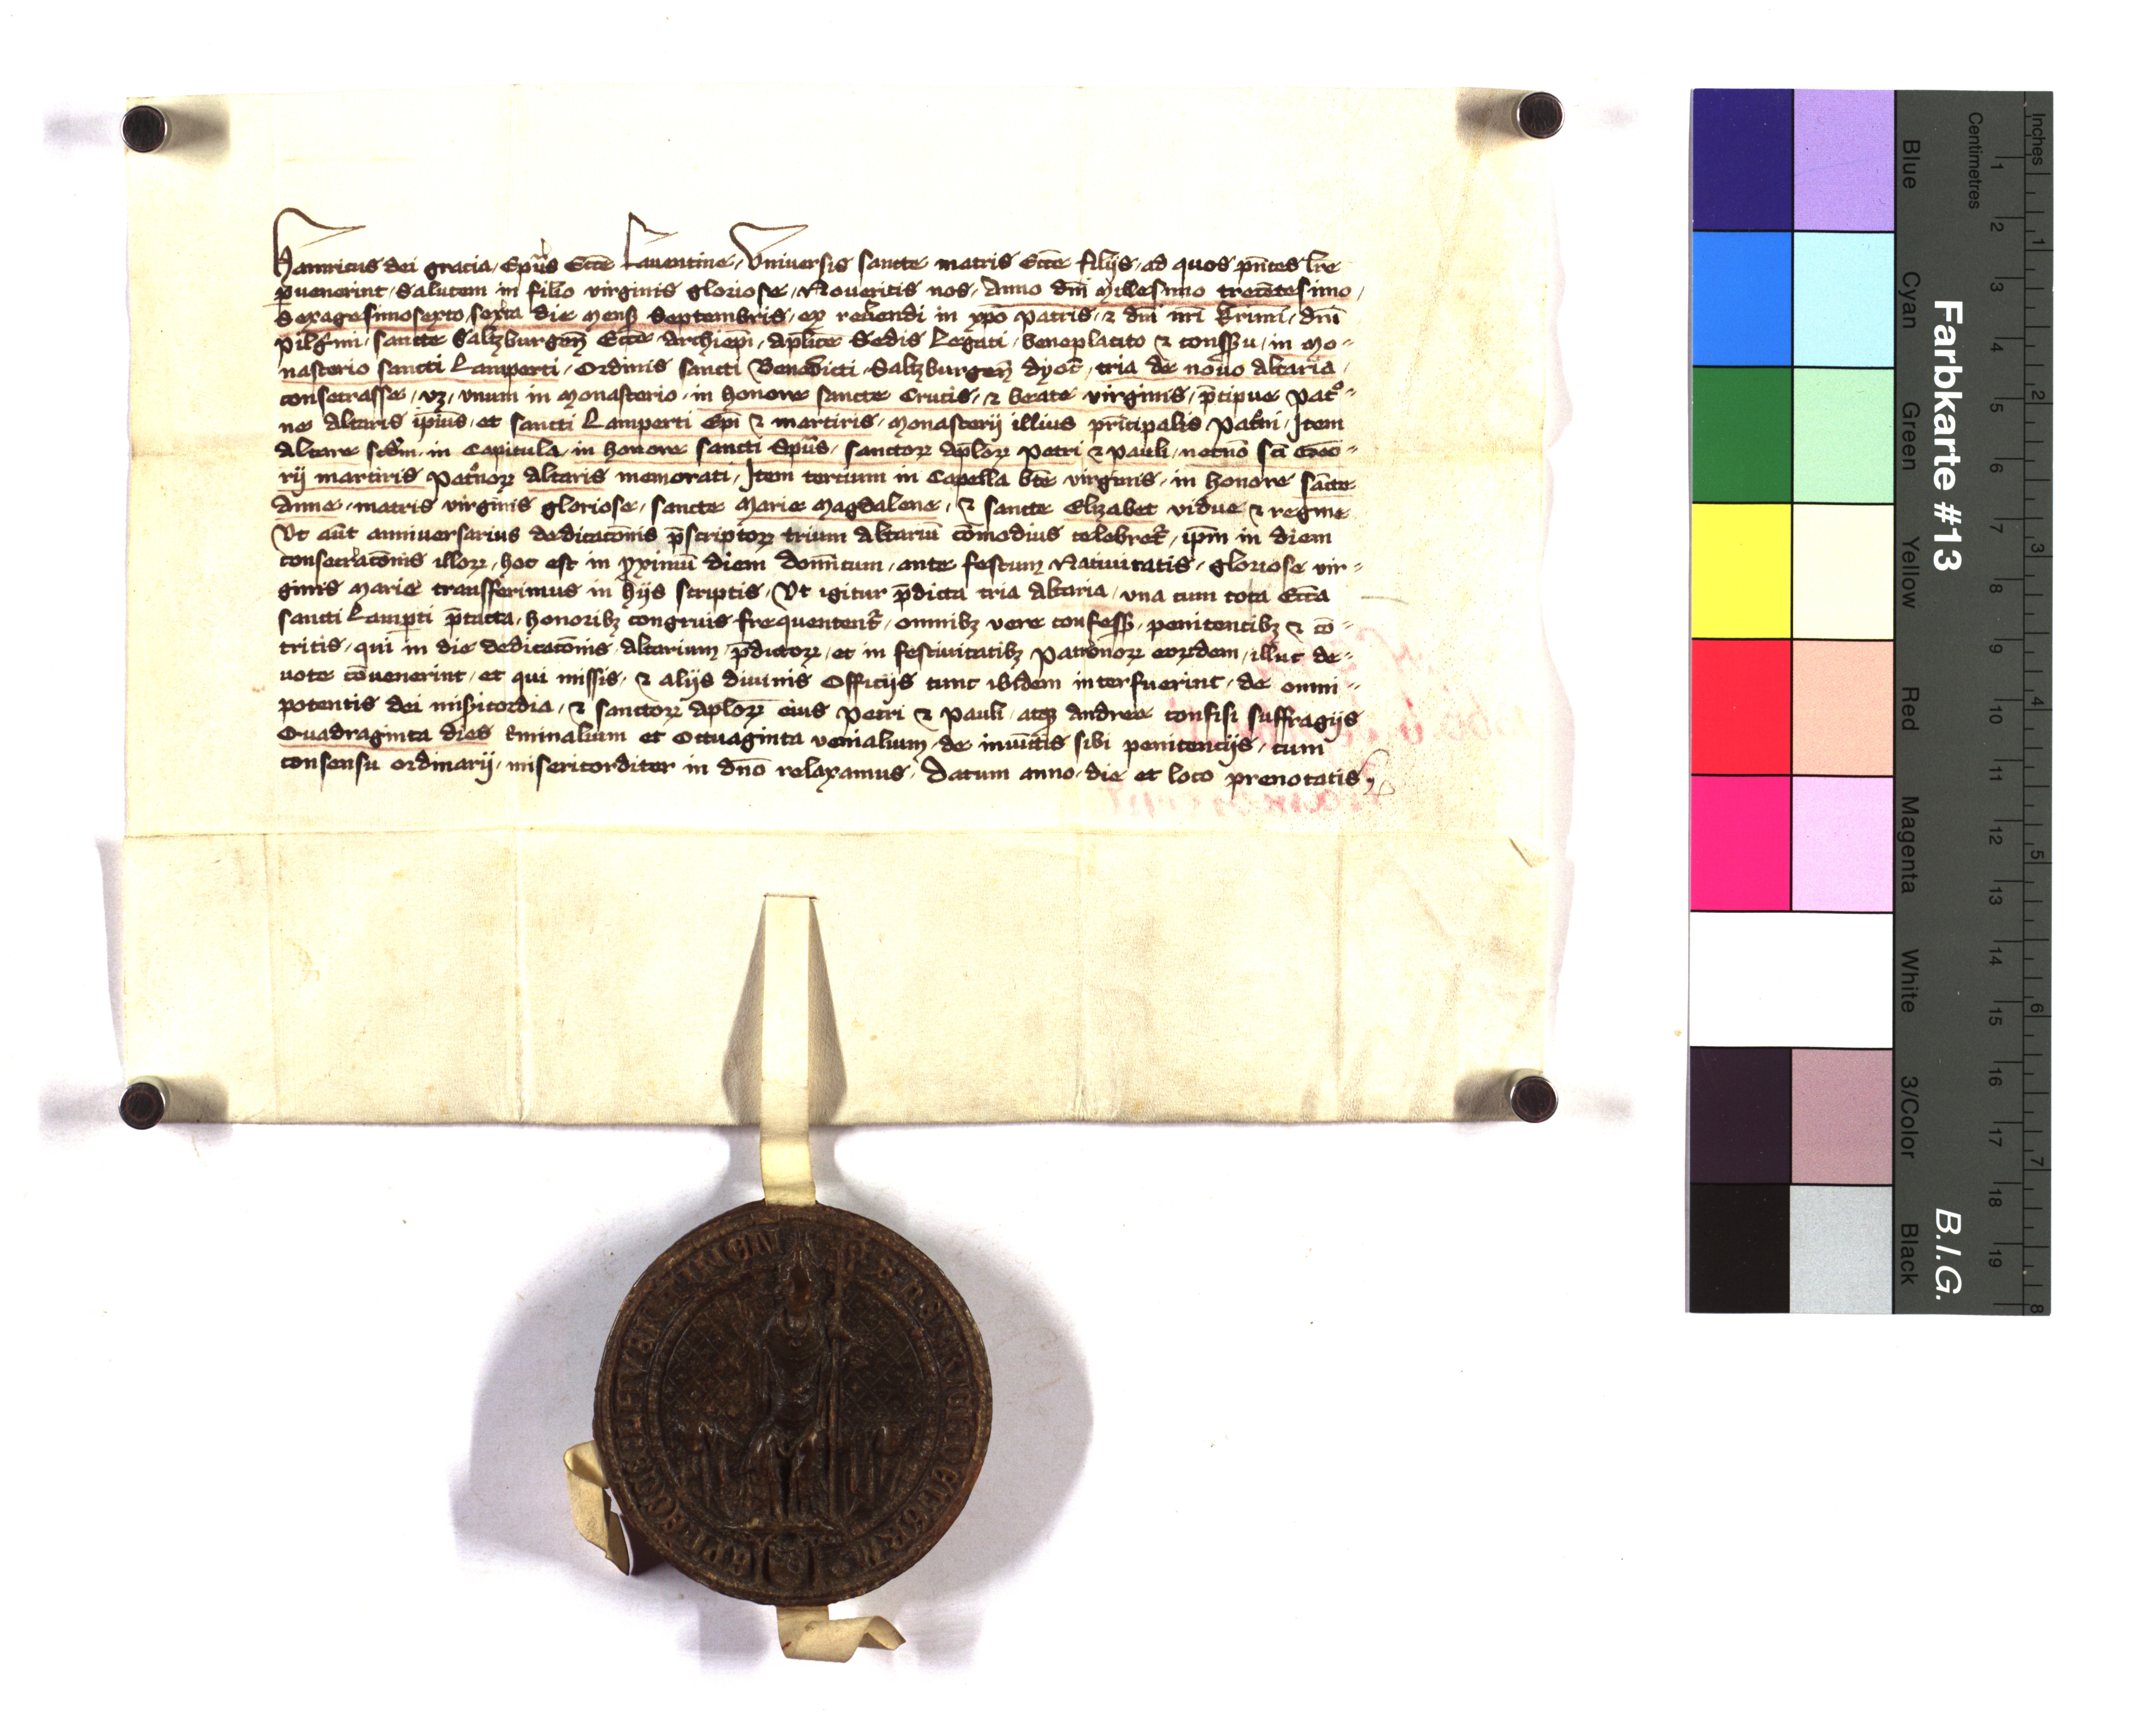 Hainricus dei gracia, Ep̄us Ecc̄e Lauentine, Vniuersis sancte matris Ecc̄e filijs, ad quos pn̄tes lr̄e
ꝑuenerint, Salutem in filio virginis gloriose, Noueritis nos, Anno dn̄i Millesimo trecētesimo,
Sexagesimosexto, sexta die mens Septembris, ex reuerendi in xp̄o Patris, ⁊ dn̄i nr̄i dn̄i
Pilgrimi, sancte Saltzburgen̄ Ecc̄e Archiep̄i, apl̄ice Sedis Legati, beneplacito ⁊ consensu, in mo-
nasterio sancti Lamperti, Ordinis sancti Benedicti, Saltzburgen̄ dyoc̄, tria de nouo altaria,
consecrasse, vꝫ, vnum in Monasterio, in honore sancte Crucis, ⁊ beate virginis, p̄cipue Pat°-
ne altaris ip̄ius, et sancti Lamperti Ep̄i ⁊ martiris, Monasterij illius prīcipalis Pat°ni, Item
Altare scd̄m, in Capitula, in honore sancti Sp̄us, sanctoꝝ ap̄loꝝ Petri ⁊ Pauli, necnō sc̄i
rij martiris Pat°noꝝ altaris memorati, Item tertium in Capella bt̄e virginis, in honore sācte
Anne, matris virginis gloriose, sancte Marie Magdalene, ⁊ sancte Elizabet vidue ⁊ regine
Vt aūt anniuersarius dedicacōnis p̄scriptoꝝ trium Altariū cōmodius celebret᷑, ip̄m in diem
consecracōnis illoꝝ, hoc est in ꝓximū diem domīcum, ante festum Natiuitatis, gloriose vir-
ginis Marie transferimus in hijs scriptis, Vt igitur p̄dicta tria altaria, vna cum tota Ecc̄a
sancti Lamꝑti p̄tacta, honoribꝫ congruis frequentent᷑, omnibꝫ vere confess, penitentibꝫ ⁊ cō-
tritis, qui in die dedicacōnis altarium p̄dictoꝝ, et in festiuitatibꝫ Patronoꝝ eoꝝdem, illuc de-
uote cōuenerint, et qui missis, ⁊ alijs diuinis Officijs tunc ibidem interfuerint, de omni-
potentis dei mis̄icordia, ⁊ sanctoꝝ aploꝝ eius Petri ⁊ Pauli, atqꝫ Andree confisi suffragijs
Quadraginta dies criminalium et Octuaginta venialium, de iniūctis sibi penitencijs, cum
consensu ordinarij, misericorditer in dn̄o relaxamus, Datum anno, die et loco prenotatis,
Farbkarte #13
B.I.G.
Inches
Centimetres
1 2 3 4 5 6 7 8 9 10 11 12 13 14 15 16 17 18 19
1 2 3 4 5 6 7 8
Blue
Cyan
Green
Yellow
Red
Magenta
White
3/Color
Black